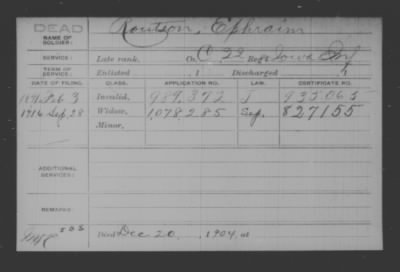 DEAD
NAME OF SOLDIER: Routson, Ephraim
SERVICE: Late rank, Co. C, 32 Reg't Iowa Inf
TERM OF SERVICE: Enlisted , 1 Discharged , 1
DATE OF FILING. CLASS. APPLICATION NO. LAW. CERTIFICATE NO.
1891 Feb 3 Invalid, 989,372 J 935065
1916 Sep 28 Widow, 1,078,285 Sep. 827155
Minor,
ADDITIONAL SERVICES:
REMARKS:
Died Dec 20, 1904, at